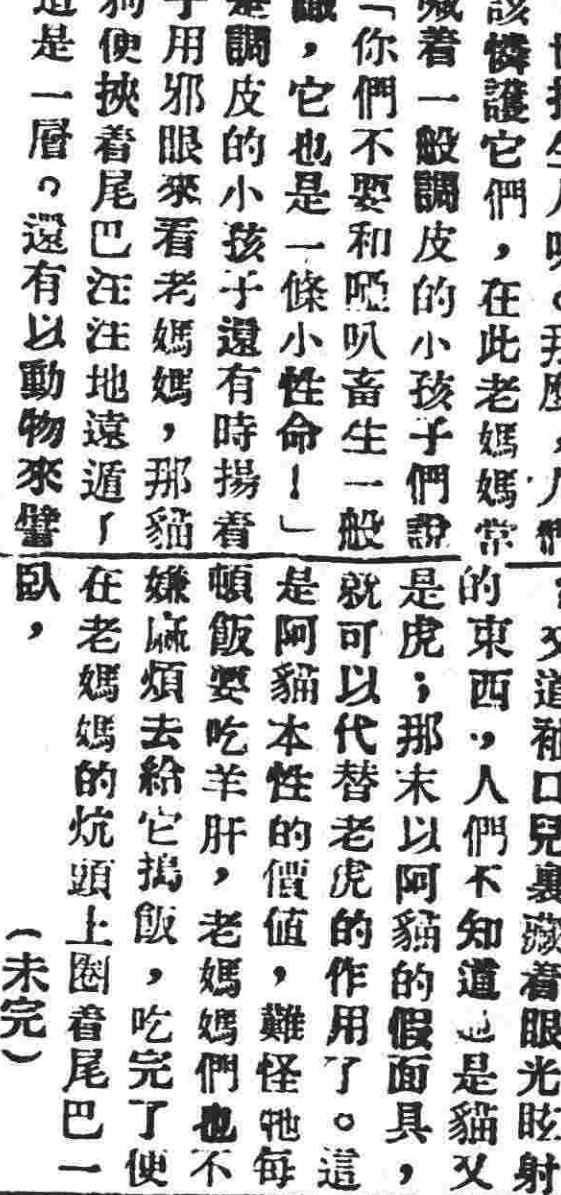 生人。那麼,人們
該憐護它們,在此老媽媽常
喊着一般調皮的小孩子們說
「你們不要和啞叭畜生一般
識,它也是一條小性命!」
是調皮的小孩子還有時揚着
子用邪眼來看老媽媽,那貓
狗便挾着尾巴汪汪地遠遁了
這是一層。還有以動物來譬
又道袖口兒裏藏着眼光眩射
的東西,人們不知道也是貓又
是虎;那末以阿貓的假面具,
就可以代替老虎的作用了。這
是阿貓本性的價值,難怪牠每
頓飯要吃羊肝,老媽媽們也不
嫌麻煩去給它搗飯,吃完了便
在老媽媽的炕頭上圈着尾巴一
臥,
(未完)